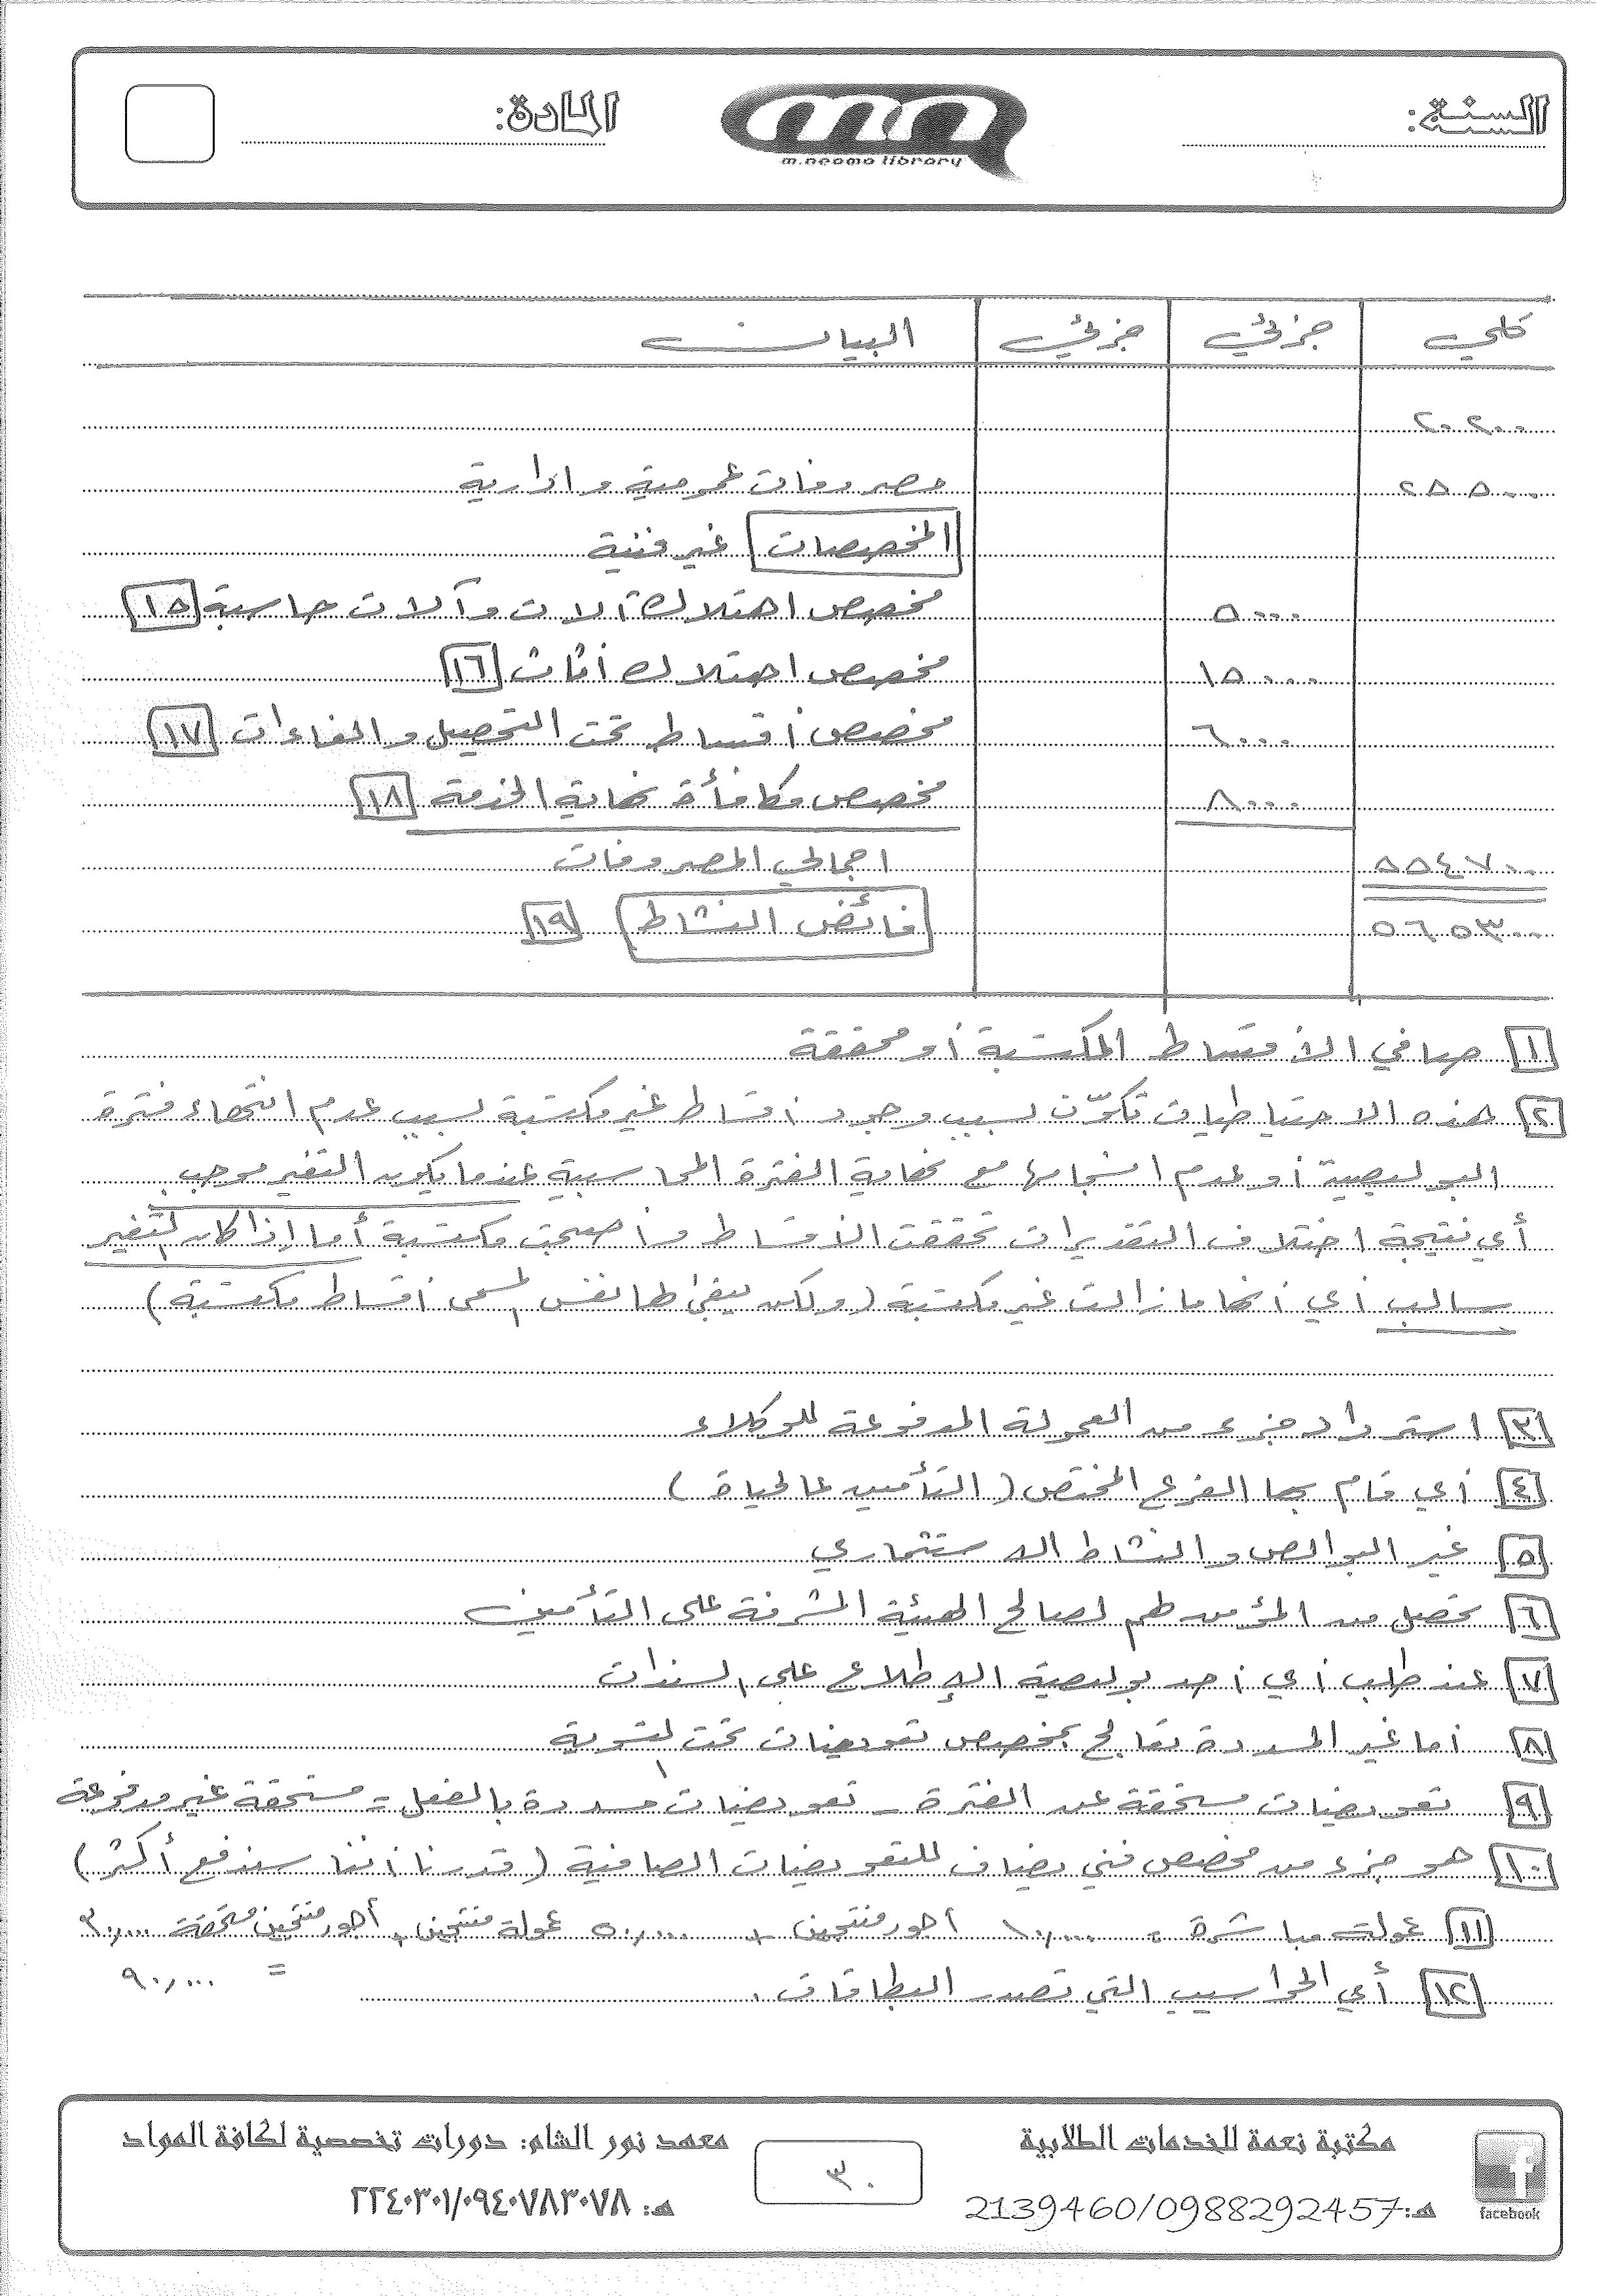 السنة:
المادة:
m.neama library
كلي جزئي جزئي البيان
٢٠٢٠٠
٢٥٥٠٠٠ مصروفات عمومية وادارية
المخصصات غير فنية
٥٠٠٠ مخصص اهتلاك آلات وآلات حاسبة ١٥
١٥٠٠٠ مخصص اهتلاك أثاث ١٦
٦٠٠٠ مخصص أقساط تحت التحصيل والغاءات ١٧
٨٠٠٠ مخصص مكافأة نهاية الخدمة ١٨
٥٥٤٧٠٠ اجمالي المصروفات
٥٦٥٣٠٠ فائض النشاط ١٩
١ صافي الأقساط المكتسبة أو محققة
٢ هذه الاحتياطيات تكوّن بسبب وجود أقساط غير مكتسبة بسبب عدم انتهاء فترة
البوليصة أو عدم انسجامها مع نهاية الفترة المحاسبية عندما يكون التغير موجب
أي نتيجة اختلاف التقديرات تحققت الأقساط وأصبحت مكتسبة أما إذا كان التغير
سالب أي أنها ما زالت غير مكتسبة (ولكن يبقى لها نفس المسمى أقساط مكتسبة)
٣ استرداد جزء من العمولة المدفوعة للوكلاء
٤ أي قام بها الفرع المختص (التأمين عالحياة)
٥ غير البوالص والنشاط الاستثماري
٦ تحصل من المؤمن لهم لصالح الهيئة المشرفة على التأمين
٧ عند طلب أي أحد بوليصة الإطلاع على السندات
٨ أما غير المسددة تعالج بمخصص تعويضات تحت التسوية
٩ تعويضات مستحقة عن الفترة - تعويضات مسددة بالفعل = مستحقة غير مدفوعة
١٠ هو جزء من مخصص فني يضاف للتعويضات الصافية (قدرنا أننا سندفع أكثر)
١١ عمولة مباشرة = ١٠,٠٠٠ أجور منتجين + ٥٠,٠٠٠ عمولة منتجين + أجور منتجين مستحقة ٣٠,٠٠٠
= ٩٠,٠٠٠
١٢ أي الحواسيب التي تصدر البطاقات.
مكتبة نعمة للخدمات الطلابية
هـ: 2139460/0988292457
facebook
٣٠
معهد نور الشام: دورات تخصصية لكافة المواد
هـ: ٢٢٤٠٣٠١/٠٩٤٠٧٨٣٠٧٨